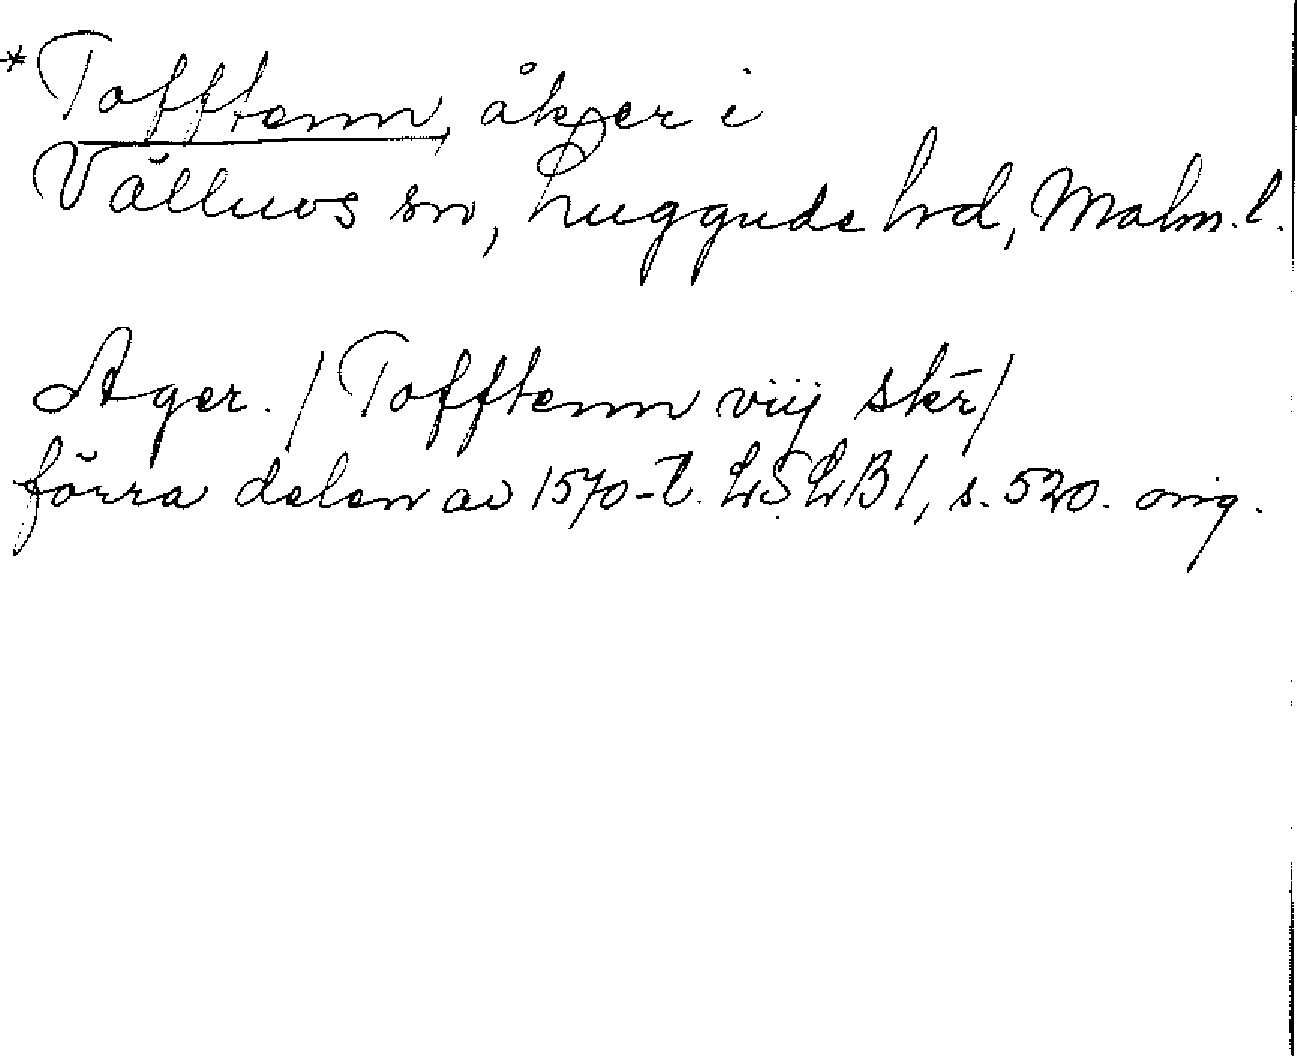 *Tofftenn, åker i
Välluvs sn, Luggude hrd, Malm. l.
Ager. / Tofftenn viij skr̄ /
förra delen av 1570-t. LSLB 1, s. 520. orig.